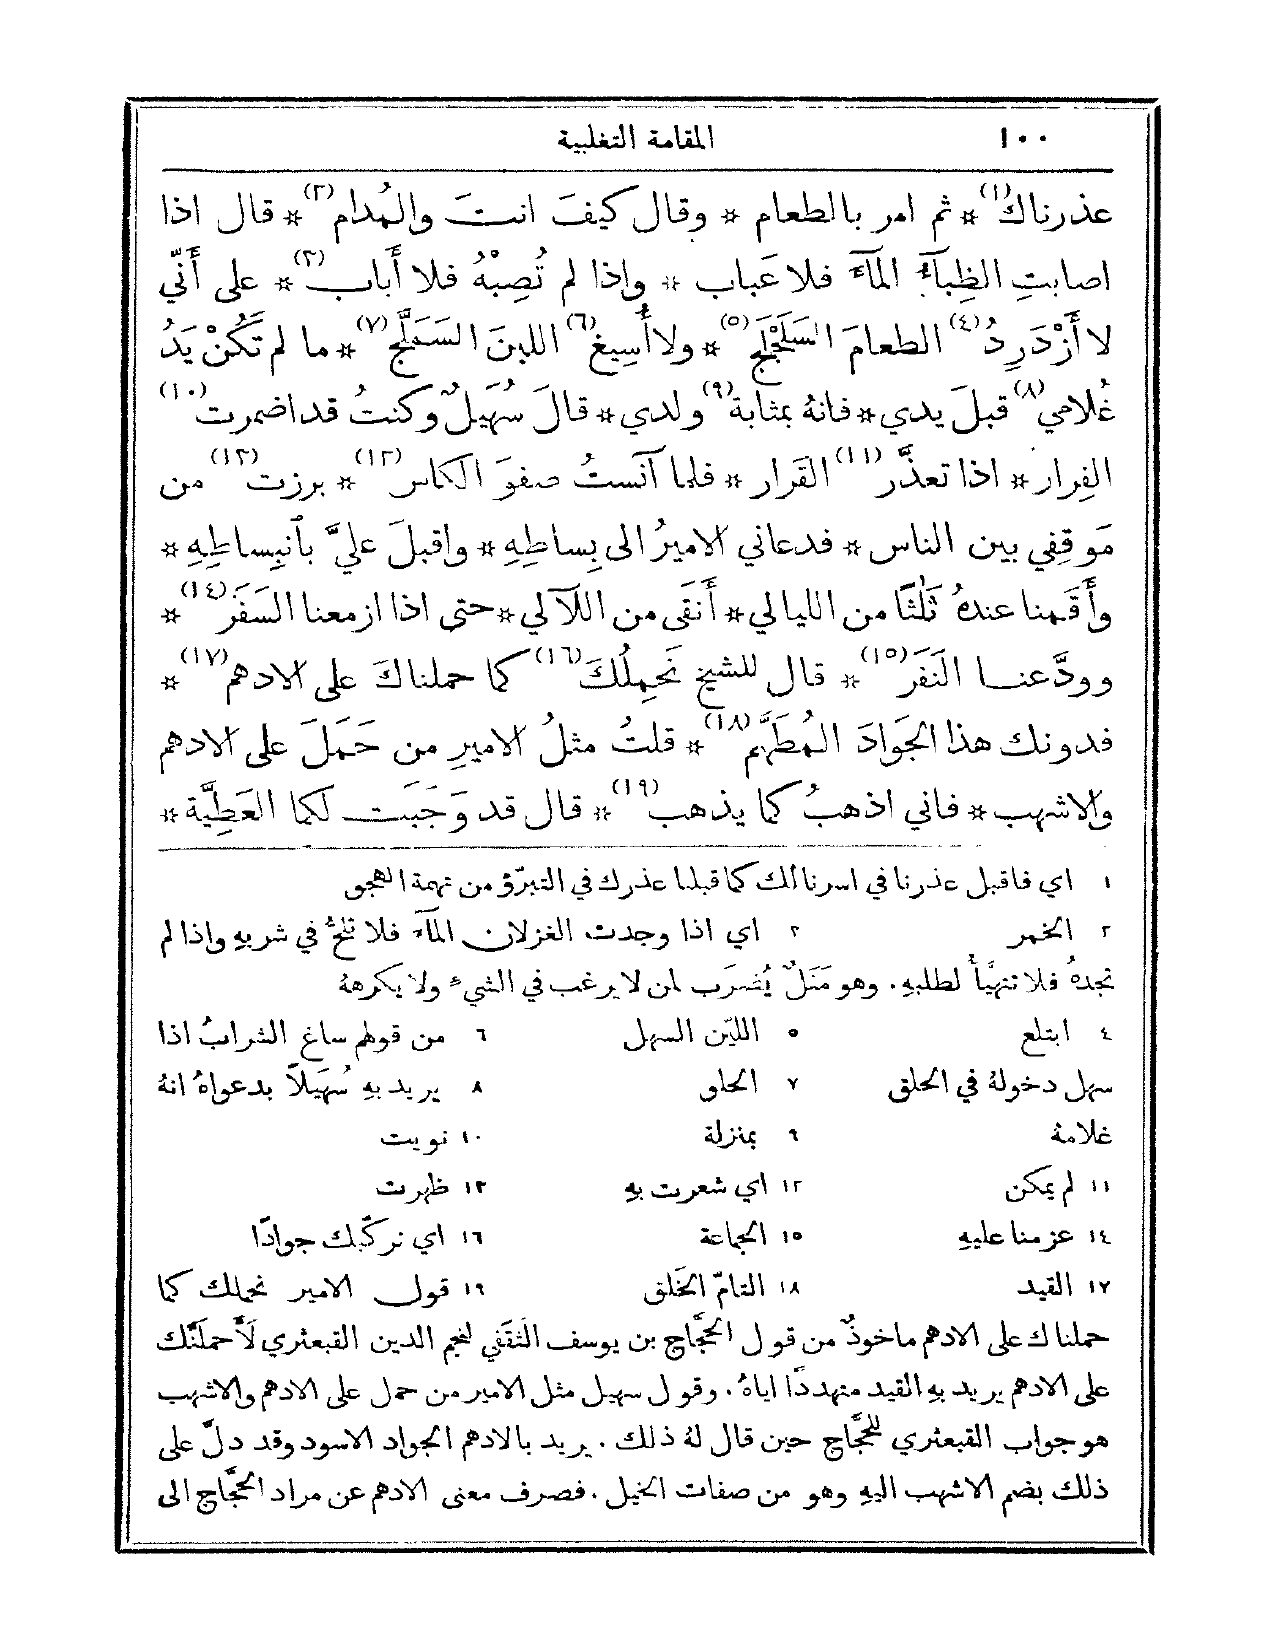 ١٠٠ المقامة التغلبية
عذرناك(١) * ثم امر بالطعام * وقال كيفَ انتَ والمُدام(٢) * قال اذا
اصابتِ الظِبآءُ المآءَ فلا عَباب * واذا لم تُصِبْهُ فلا أَباب(٣) * على أَنّي
لا أَزْدَرِدُ(٤) الطعامَ السَلَجْلَج(٥) * ولا أُسِيغ(٦) اللبنَ السَمَلَّج(٧) * ما لم تَكُنْ يَدُ
غُلامي(٨) قبلَ يدي * فانهُ بمثابة(٩) ولدي * قالَ سُهَيلٌ وكنتُ قد اضمرت(١٠)
الفِرار * اذا تعذَّر(١١) القَرار * فلما آنستُ صفوَ الكاس(١٢) * برزت(١٣) من
مَوقِفي بين الناس * فدعاني الاميرُ الى بِساطِهِ * واقبلَ عليَّ بٱنبِساطِهِ *
وأَقَمنا عندهُ ثَلٰثًا من الليالي * أَنقَى من اللآلي * حتى اذا ازمعنا السَفَر(١٤) *
وودَّعنا النَفَر(١٥) * قال للشيخ نَحمِلُكَ(١٦) كما حملناكَ على الادهم(١٧) *
فدونك هذا الجَوادَ المُطَهَّم(١٨) * قلتُ مثلُ الاميرِ من حَمَلَ على الادهم
والاشهب * فاني اذهبُ كما يذهب(١٩) * قال قد وَجَبَت لكما العَطِيَّة *
١ اي فاقبل عذرنا في اسرنا لك كما قبلنا عذرك في التبرّؤ من تهمة الهجو
٢ الخمر ٣ اي اذا وجدت الغزلان المآء فلا تلحُّ في شربهِ واذا لم
تجدهُ فلا تتهيَّأُ لطلبهِ. وهو مَثَلٌ يُضرَب لمن لا يرغب في الشيء ولا يكرههُ
٤ ابتلع ٥ الليّن السهل ٦ من قولهم ساغ الشرابُ اذا
سهل دخولهُ في الحلق ٧ الحلو ٨ يريد بهِ سُهَيلًا بدعواهُ انهُ
غلامهُ ٩ بمنزلة ١٠ نويت
١١ لم يمكن ١٢ اي شعرت بهِ ١٣ ظهرت
١٤ عزمنا عليهِ ١٥ الجماعة ١٦ اي نركّبك جوادًا
١٧ القيد ١٨ التامّ الخَلق ١٩ قول الامير نحملك كما
حملناك على الادهم ماخوذٌ من قول الحجَّاج بن يوسف الثَقَفي لنجم الدين القبعثري لَأَحملَنَّك
على الادهم يريد بهِ القيد متهددًا اياهُ. وقول سهيل مثل الامير من حمل على الادهم والاشهب
هو جواب القبعثري للحجَّاج حين قال لهُ ذلك. يريد بالادهم الجواد الاسود وقد دلَّ على
ذلك بضم الاشهب اليهِ وهو من صفات الخيل. فصرف معنى الادهم عن مراد الحجَّاج الى